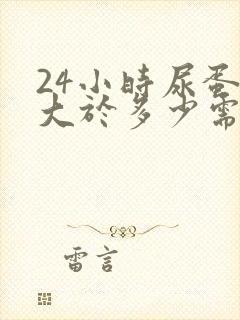 24小時尿蛋
大於多少需
雷言